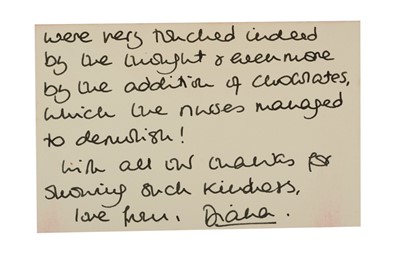 were very touched indeed
by the thought & even more
by the addition of chocolates,
which the nurses managed
to demolish!
With all our thanks for
showing such kindness,
love from, Diana.